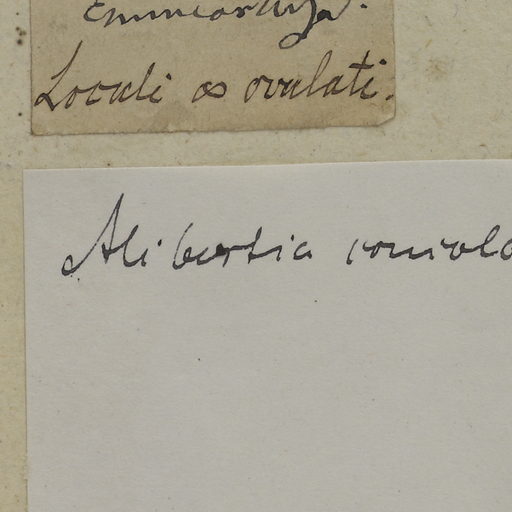 Loculi ∞ ovulati.
Alibertia concolo